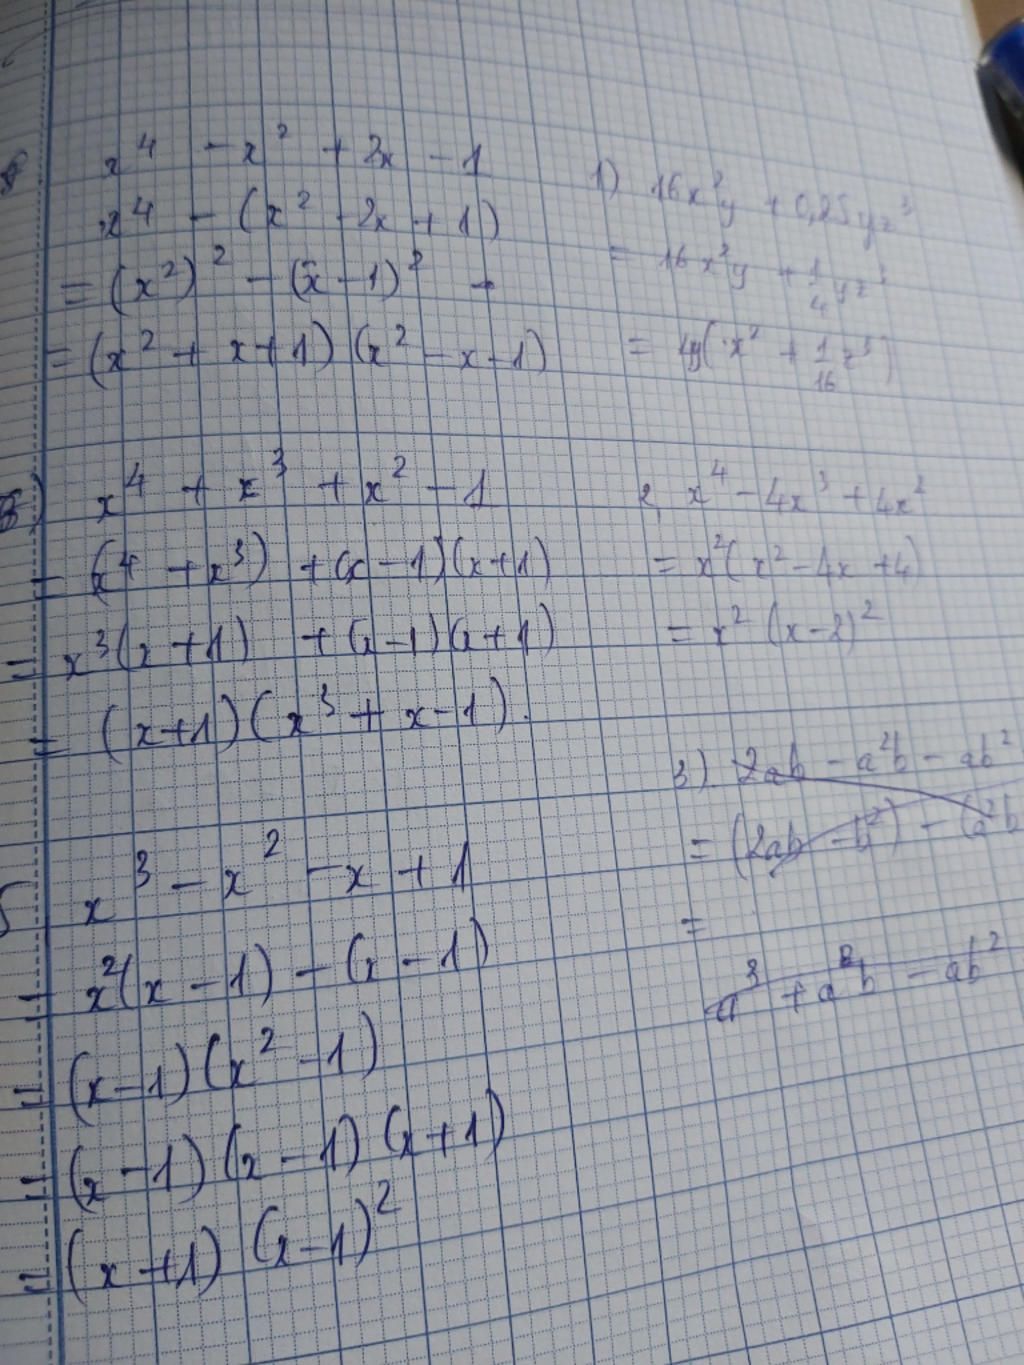 x⁴ - x² + 2x - 1
x⁴ - (x² - 2x + 1)
= (x²)² - (x - 1)²
= (x² + x + 1) (x² - x - 1)
8) x⁴ + x³ + x² - 1
= (x⁴ + x³) + (x - 1)(x + 1)
= x³(x + 1) + (x - 1)(x + 1)
= (x+1)(x³ + x - 1).
5 x³ - x² - x + 1
= x²(x - 1) - (x - 1)
= (x - 1)(x² - 1)
= (x - 1)(x - 1)(x + 1)
= (x + 1) (x - 1)²
1) 16x²y + 0,25yz³
= 16x²y + 1/4 yz³
= 4y( x² + 1/16 z³)
2, x⁴ - 4x³ + 4x²
= x²(x² - 4x + 4)
= x² (x - 2)²
3) 2ab - a²b - ab²
= (2ab - b²) - (a²b
=
a³ + a²b - ab²